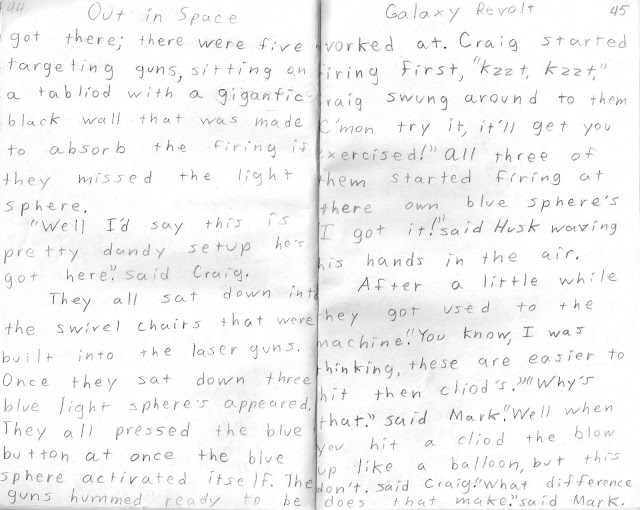 44
Out in Space
got there; there were five
targeting guns, sitting on
a tabliod with a gigantic
black wall that was made
to absorb the firing if
they missed the light
sphere.
"Well I'd say this is
pretty dandy setup he's
got here." said Craig.
They all sat down into
the swivel chairs that were
built into the laser guns.
Once they sat down three
blue light sphere's appeared.
They all pressed the blue
button at once the blue
sphere activated itself. The
guns hummed ready to be
Galaxy Revolt
45
worked at. Craig started
firing first, "kzzt, kzzt,"
raig swung around to them
C'mon try it, it'll get you
exercised!" all three of
them started firing at
there own blue sphere's
I got it!" said Husk waving
his hands in the air.
After a little while
they got used to the
machine. "You know, I was
thinking, these are easier to
hit then cliod's." "Why's
that." said Mark. "Well when
you hit a cliod the blow
up like a balloon, but this
don't. said Craig. "What difference
does that make." said Mark.